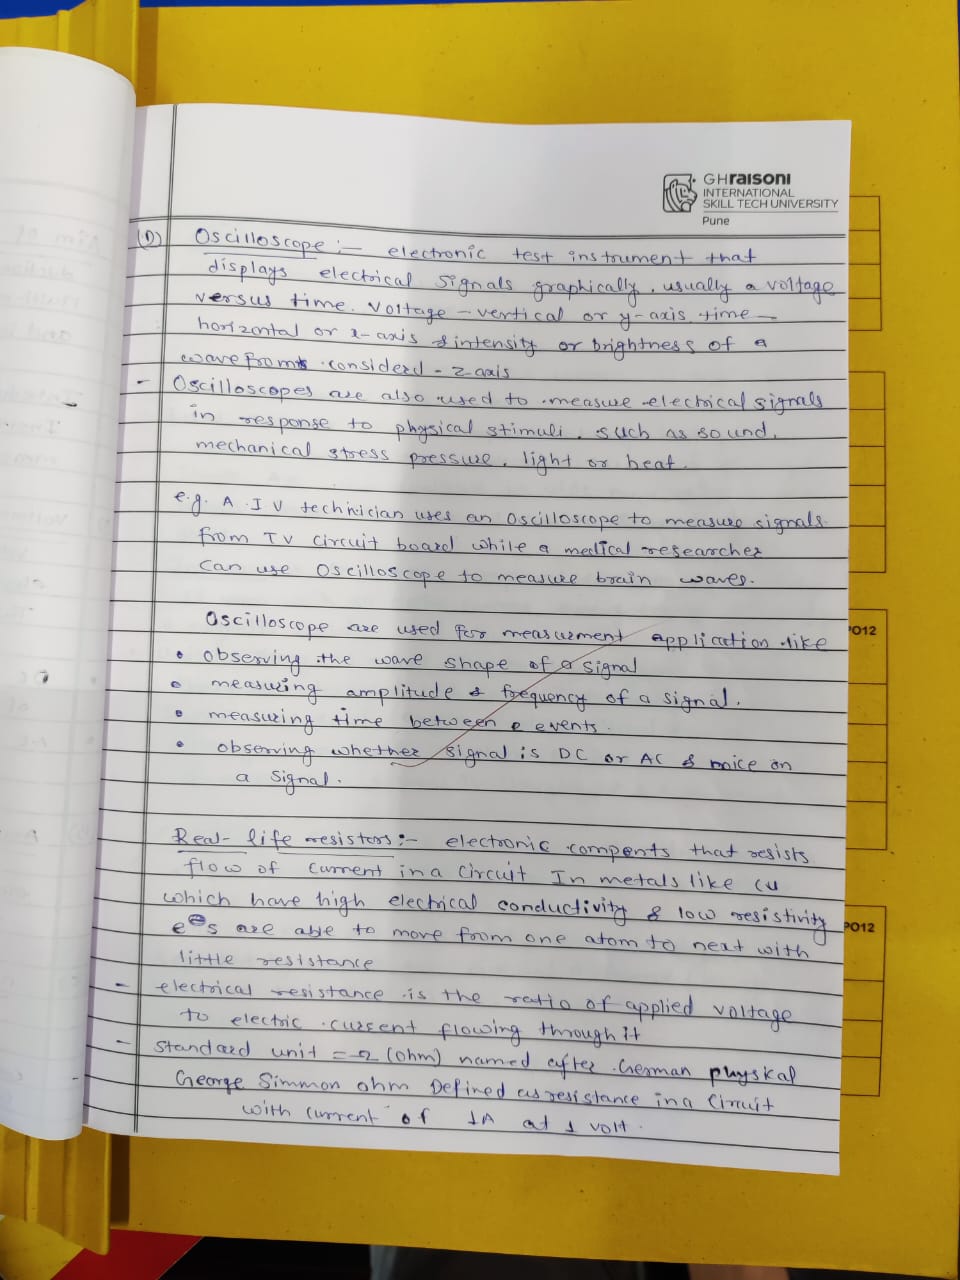 GHRAISONI
INTERNATIONAL
SKILL TECH UNIVERSITY
Pune
(D) Oscilloscope :- electronic test instrument that
displays electrical signals graphically, usually a voltage
versus time. Voltage - vertical or y-axis time -
horizontal or x-axis & intensity or brightness of a
waveform considerd - z axis
- Oscilloscopes are also used to measure electrical signals
in response to physical stimuli, such as sound,
mechanical stress pressure, light or heat.
e.g. A IV technician uses an oscilloscope to measure signals
from TV circuit board while a medical researcher
can use oscilloscope to measure brain waves.
Oscilloscope are used for measurment application like
• observing the wave shape of a signal
• measuring amplitude & frequency of a signal.
• measuring time between e events.
• observing whether signal is DC or AC & noice on
a signal.
Real-life resistors :- electronic compents that resists
flow of current in a circuit In metals like cu
which have high electrical conductivity & low resistivity
e⊖s are able to move from one atom to next with
little resistance
- electrical resistance is the ratio of applied voltage
to electric current flowing through it
- standard unit = Ω (ohm) named after German physkal
George Simmon ohm Defined as resistance in a circuit
with current of 1A at 1 volt.
PO12
PO12